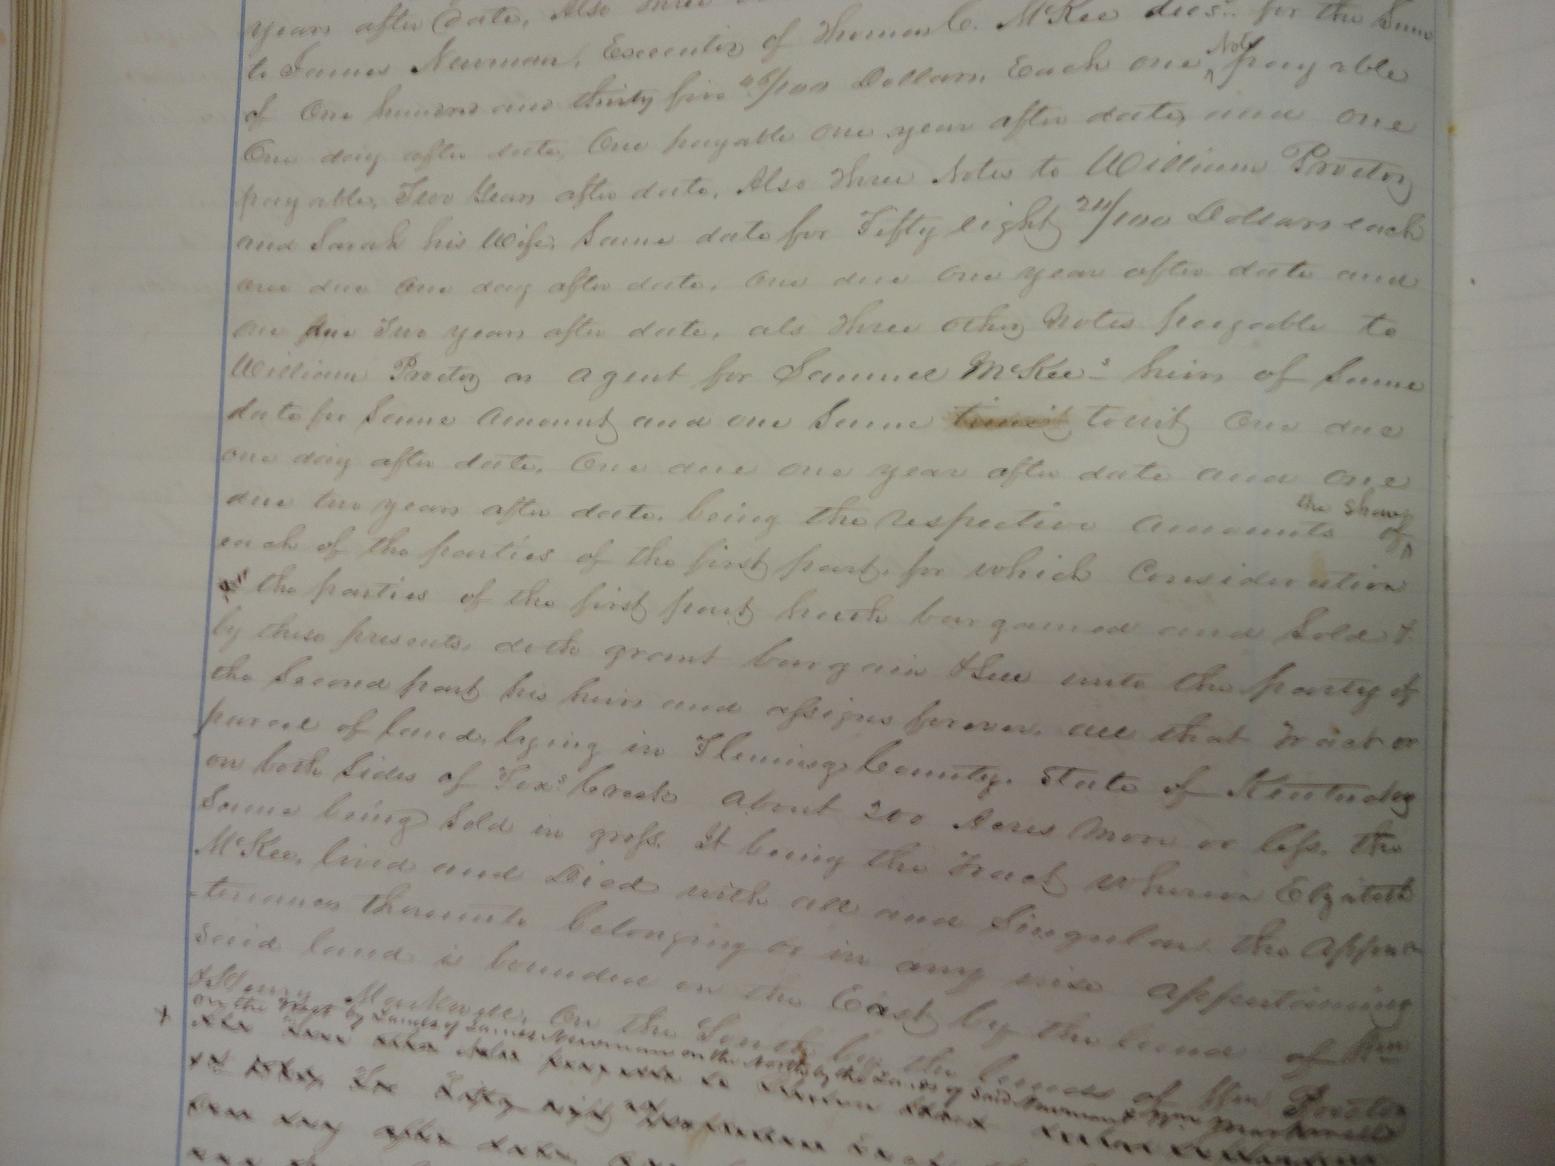 years after date, Also three
to James Newman, Executor of Thomas C. McKee decs.. for the Sum
of One hundred and thirty five 46/100 Dollars, Each one, Note payable
One day after date, One payable one year after date, and one
payable, Two years after date, Also three Notes to William Proctor
and Sarah his Wife, Same date for Fifty eight 24/100 Dollars each
one due one day after date, one due one year after date and
one due Two years after date, als three other Notes payable to
William Proctor as agent for Samuel McKee's heirs of Same
date for Same amount and one Same towit One due
one day after date, One due one year after date and one
due two years after date, being the respective amounts the share of
each of the parties of the first part, for which Consideration
the parties of the first part hath bargained and Sold &
by these presents, doth grant bargain & Sell unto the party of
the Second part his heirs and assigns forever, all that Tract or
parcel of land, lying in Fleming County, State of Kentucky
on both Sides of Foxs Creek About 200 Acres More or less, the
Same being Sold in gross. It being the Tract Wherein Elizabeth
McKee, lived and Died with all and Singular the Appur
-tenances thereunto belonging or in any wise appertaining
said land is bounded on the East by the land of Wm
& Henry Markwell, On the South by the lands of Wm Proctor
on the West by Lands of James Newman on the North by the Lands of Said Newman & Wm Markwell